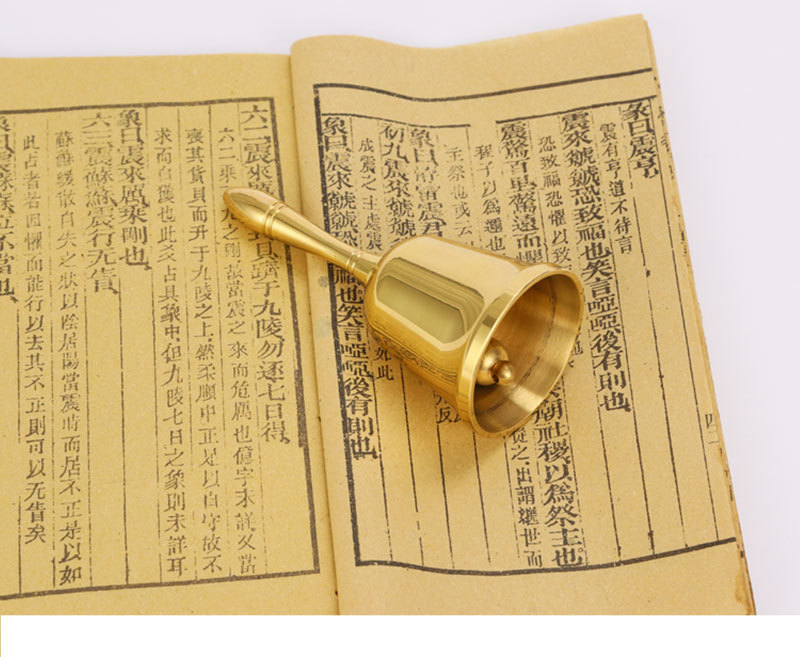 彖曰震亨
震有亨道不待言
震來虩虩恐致福也笑言啞啞後有則也
恐致福恐懼以致
震驚百里驚遠而懼
廟社稷以為祭主也
程子以為邇也
從之出謂繼世而
王祭也或云
象曰洊雷震君
反
初九震來虩虩
成震之主處震
如此
象曰震來虩虩
福也笑言啞啞後有則也
六二震來厲
貝躋于九陵勿逐七日得
六二乘九之剛故當震之來而危厲也億字未詳又當
喪其貨貝而升于九陵之上然柔順中正足以自守故不
求而自獲也此爻占具象中但九陵七日之象則未詳耳
象曰震來厲乘剛也
六三震蘇蘇震行无眚
蘇蘇緩散自失之狀以陰居陽當震時而居不正是以如
此占者若因懼而能行以去其不正則可以无眚矣
象曰震蘇蘇位不當也